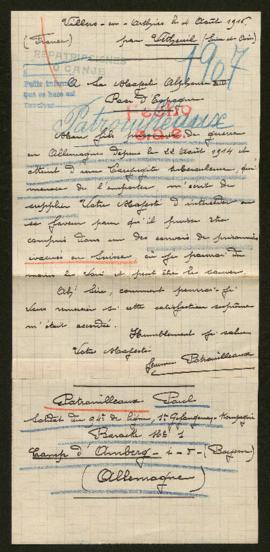 Villers-en-Arthies le 4 Août 1916
(France) par Vétheuil (Seine et Oise)
REPATRIACIONES
Y CANJE
1907
A Sa Majesté Alphonse XIII
Roi d'Espagne
Patrouilleaux
Mon fils prisonnier de guerre
en Allemagne depuis le 22 Août 1914 et
atteint d'une tuberculeuse, qui
menace de l'emporter m'oblige de
supplier Votre Majesté d'intercéder en
sa faveur pour qu'il puisse être
compris dans un des convois de prisonniers
évacués en Suisse où je pourrai du
moins le voir et peut être le sauver.
Ah! Sire, comment pourrai-je
Vous remercier si cette satisfaction suprême
m'était accordée.
Humblement je salue
Votre Majesté
Patrouilleaux
Patrouilleaux Paul
Soldat du 94e de ligne, 1e Gefangenen-Kompagnie
Baracke 1
Camp d'Amberg - i - O - (Bayern)
(Allemagne)